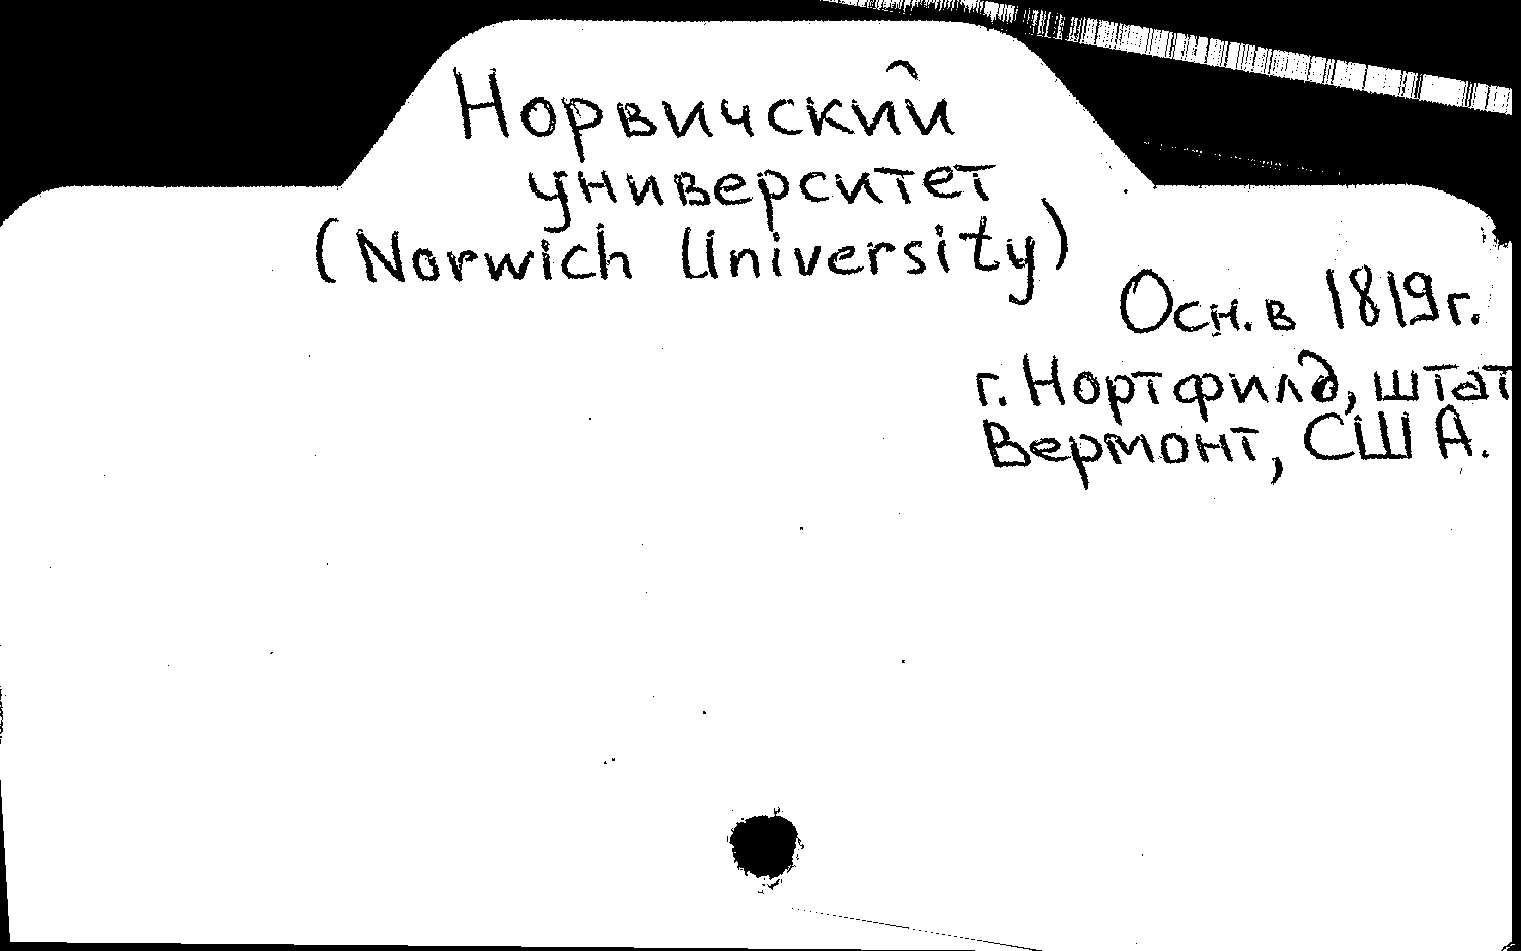 Норвичский
университет
(Norwich University)
Осн. в 1819г.
г. Нортфилд, штат
Вермонт, США.